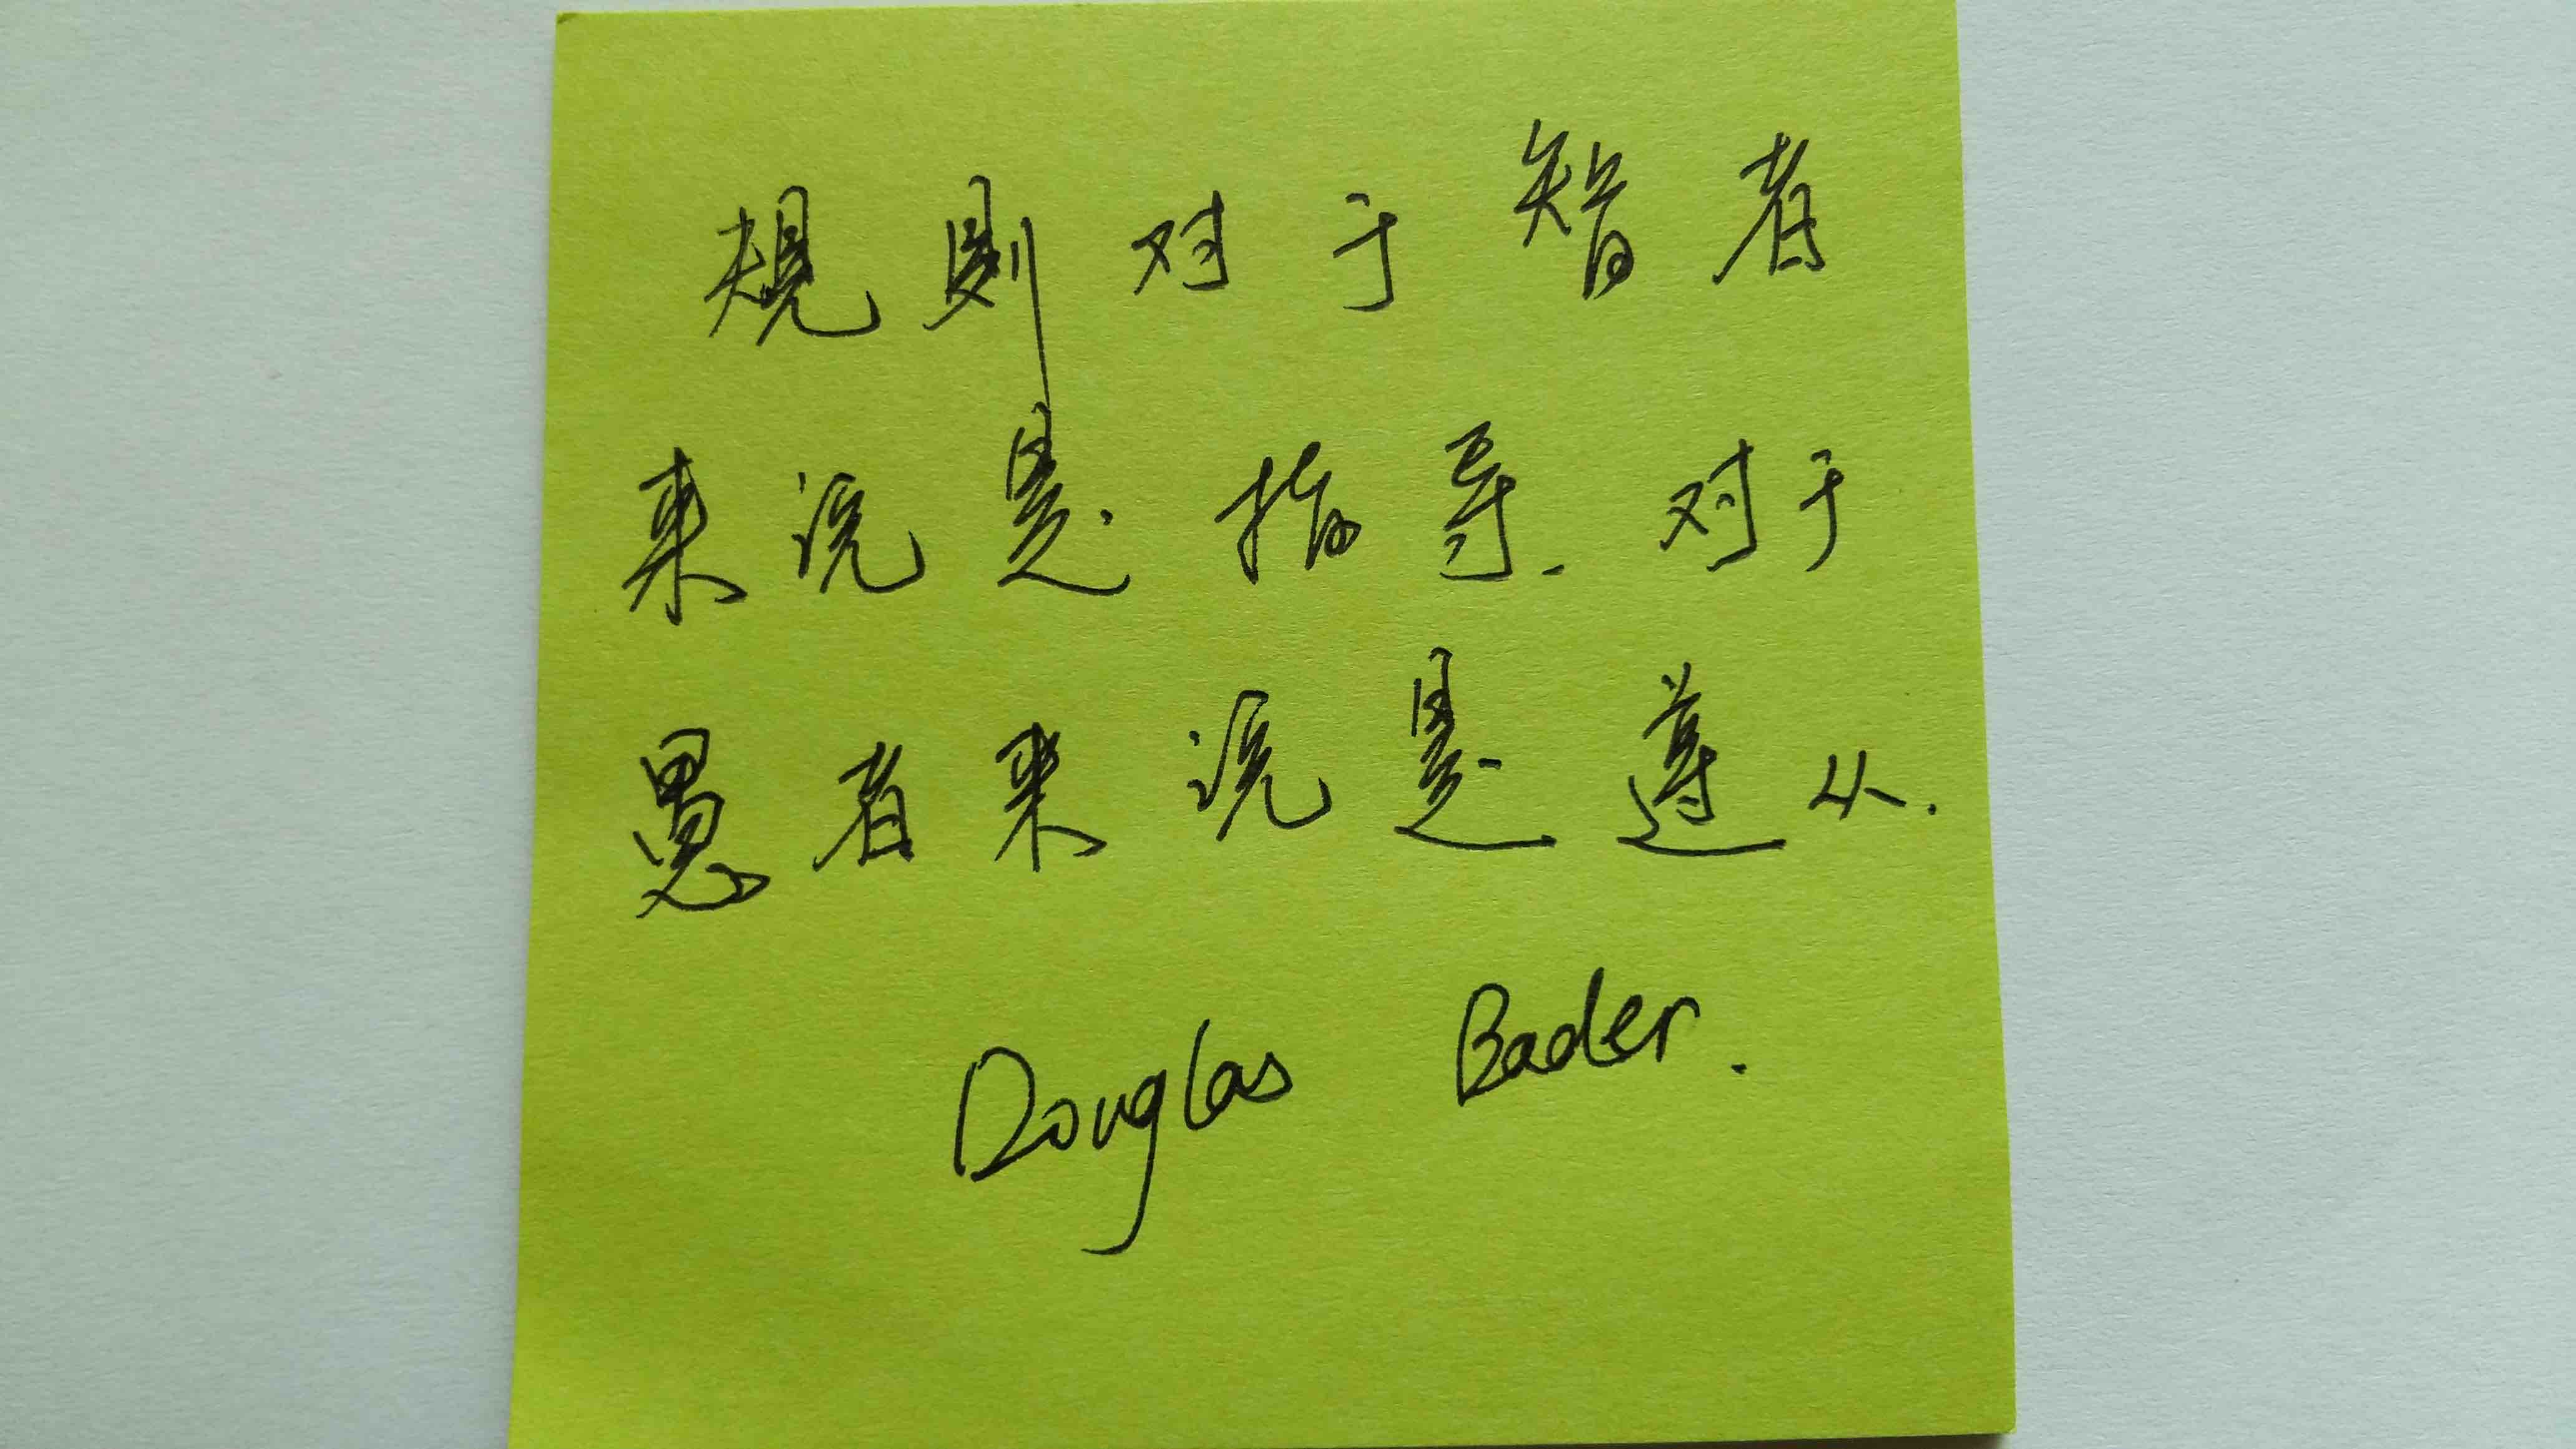 规则对于智者
来说是指导.对于
愚者来说是遵从.
Douglas Bader.